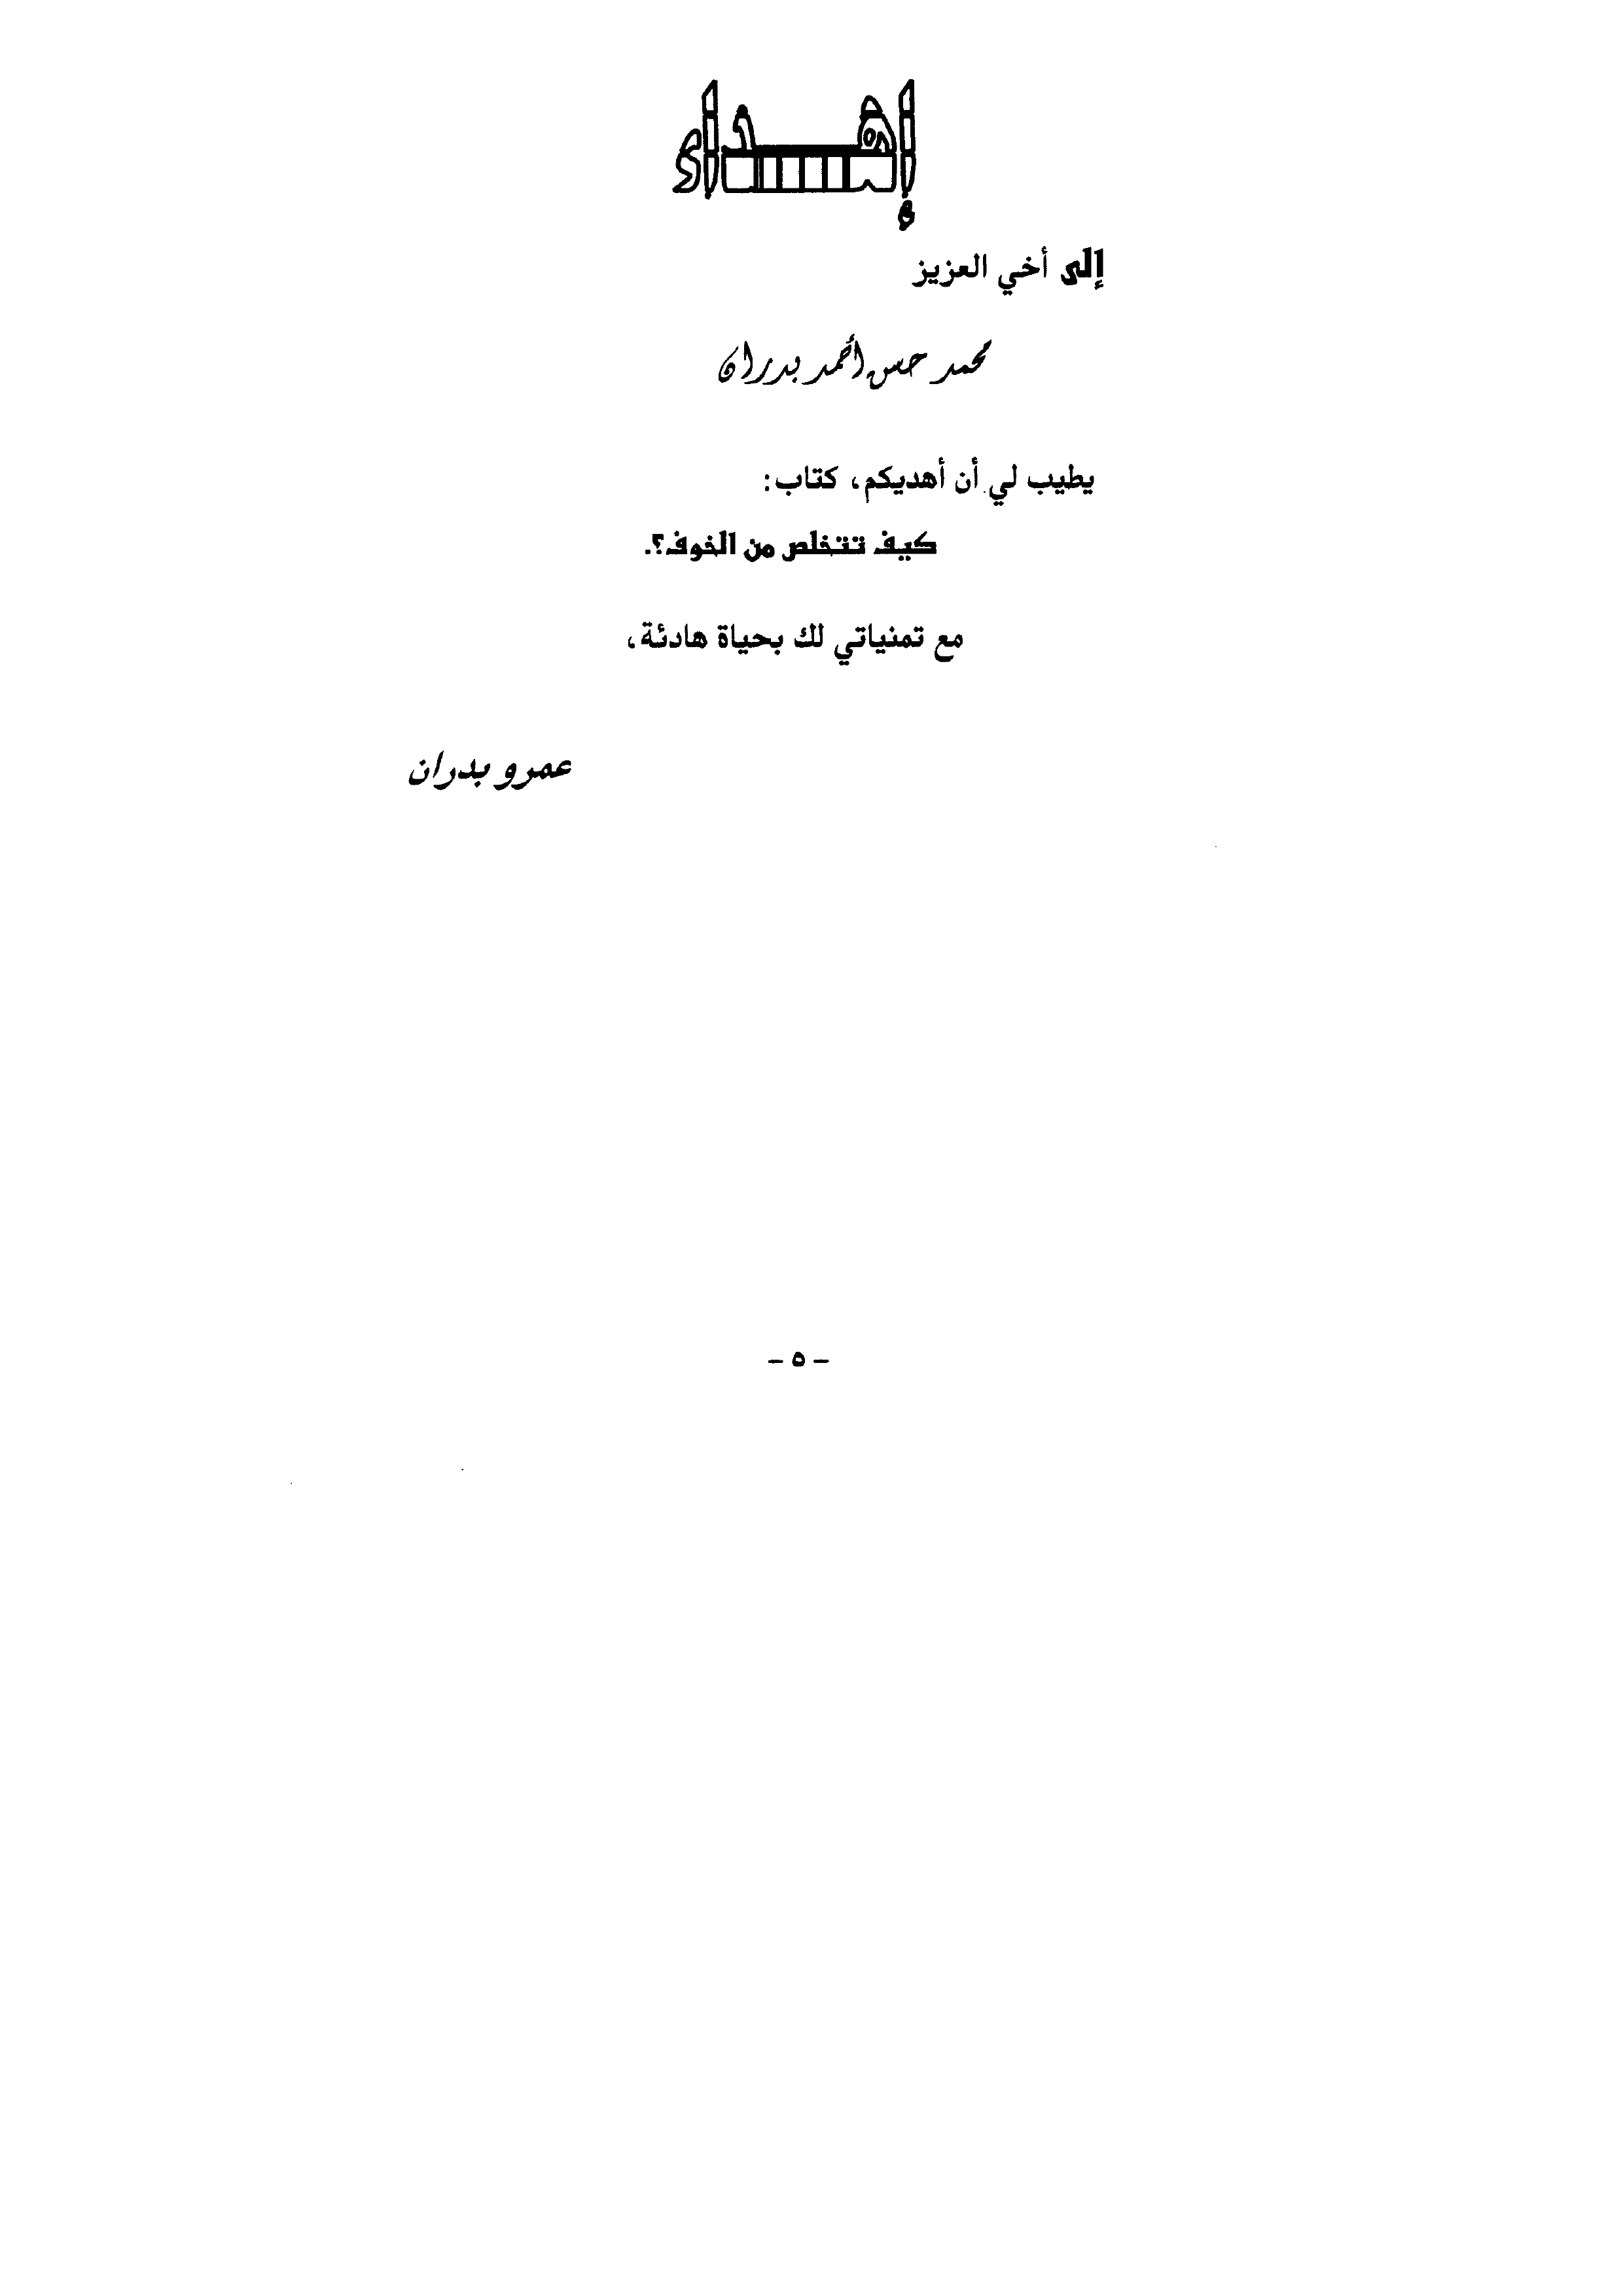 إهداء
إلى أخي العزيز
محمد حسن أحمد بدران
يطيب لي أن أهديكم، كتاب:
كيف تتخلص من الخوف؟.
مع تمنياتي لك بحياة هادئة،
عمرو بدران
- ٥ -